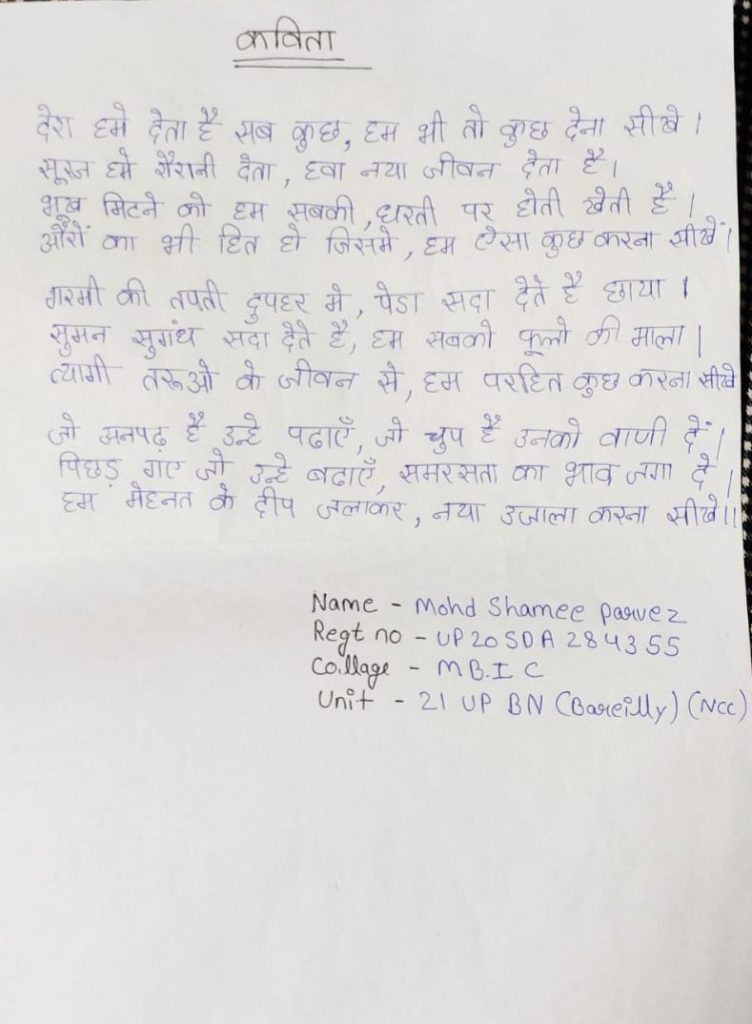 कविता
देश हमे देता है सब कुछ, हम भी तो कुछ देना सीखे।
सूरज हमे रौशनी देता, हवा नया जीवन देता है।
भूख मिटने को हम सबकी, धरती पर होती खेती है।
औरों का भी हित हो जिसमे, हम ऐसा कुछ करना सीखें।
गरमी की तपती दुपहर मे, पेडा सदा देते है छाया।
सुमन सुगंध सदा देते है, हम सबको फूलो की माला।
त्यागी तरूओ के जीवन से, हम परहित कुछ करना सीखे
जो अनपढ़ है उन्हे पढाएँ, जो चुप है उनको वाणी दें।
पिछड़ गए जो उन्हे बढाएँ, समरसता का भाव जगा दे।
हम मेहनत के दीप जलाकर, नया उजाला करना सीखे।।
Name - Mohd Shamee parvez
Regt no - UP20SDA284355
Collage - MB.I C
Unit - 21 UP BN (Bareilly) (Ncc)